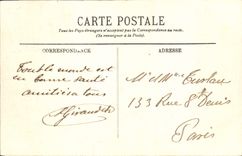 CARTE POSTALE
Tous les Pays étrangers n'acceptent pas la Correspondance au recto.
(Se renseigner à la Poste)
CORRESPONDANCE
ADRESSE
Tout le monde est
en bonne santé
amitiés à tous
Giraudet
M et Mme
133 Rue St Denis
Paris